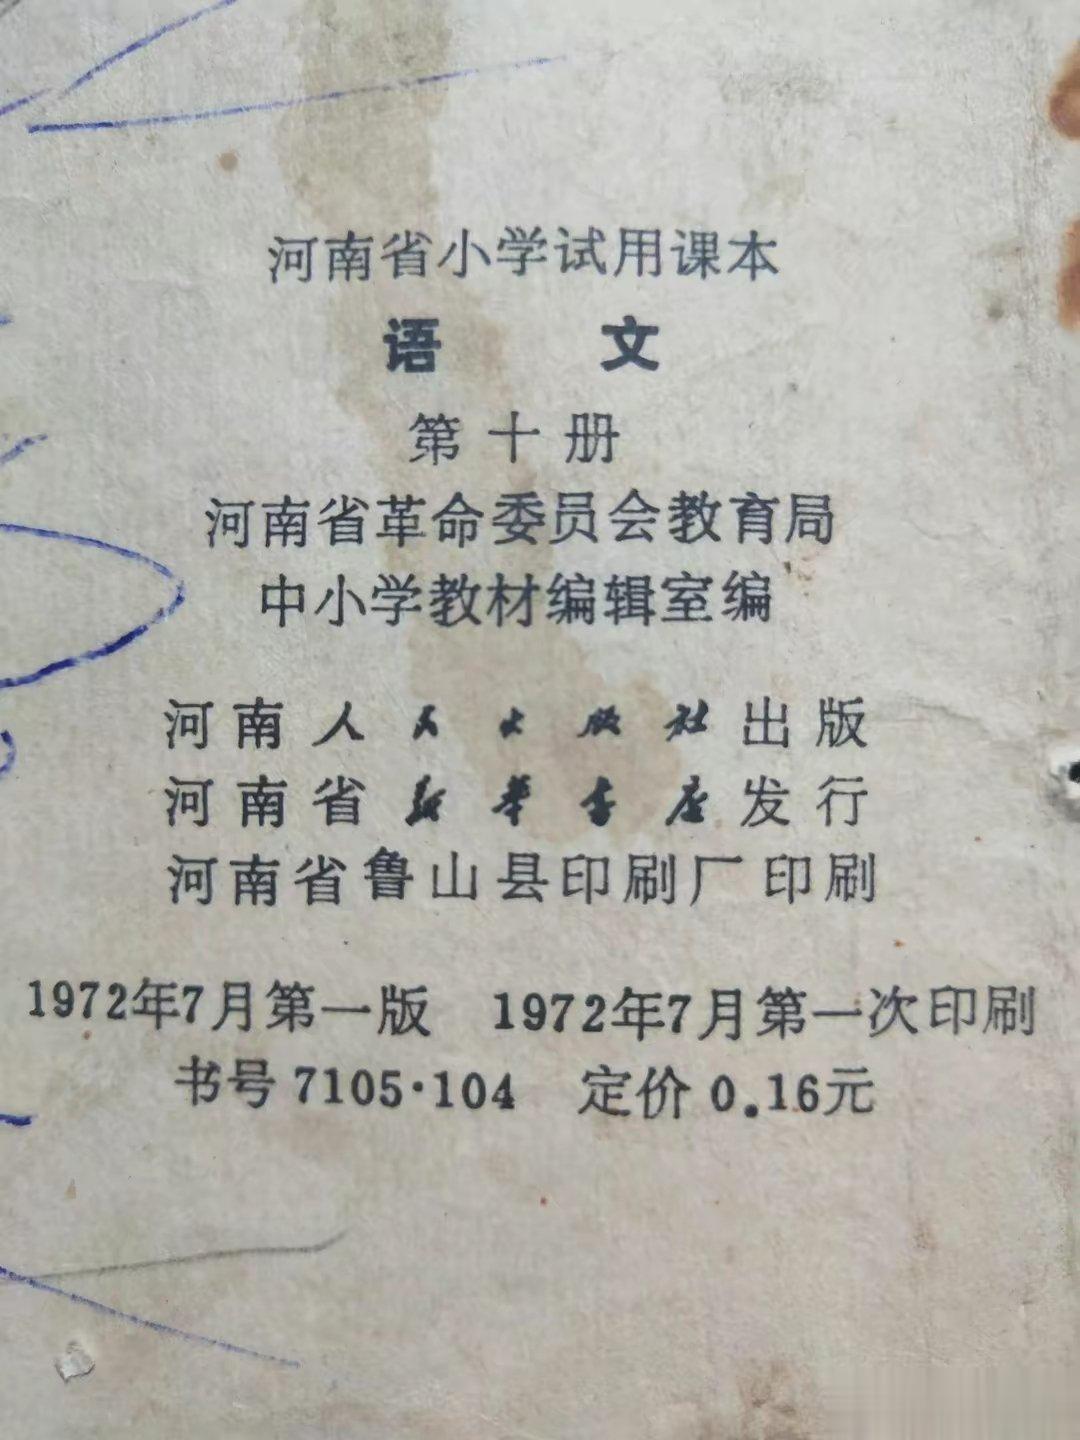 河南省小学试用课本
语 文
第十册
河南省革命委员会教育局
中小学教材编辑室编
河南人民出版社出版
河南省新华书店发行
河南省鲁山县印刷厂印刷
1972年7月第一版 1972年7月第一次印刷
书号 7105·104 定价 0.16元